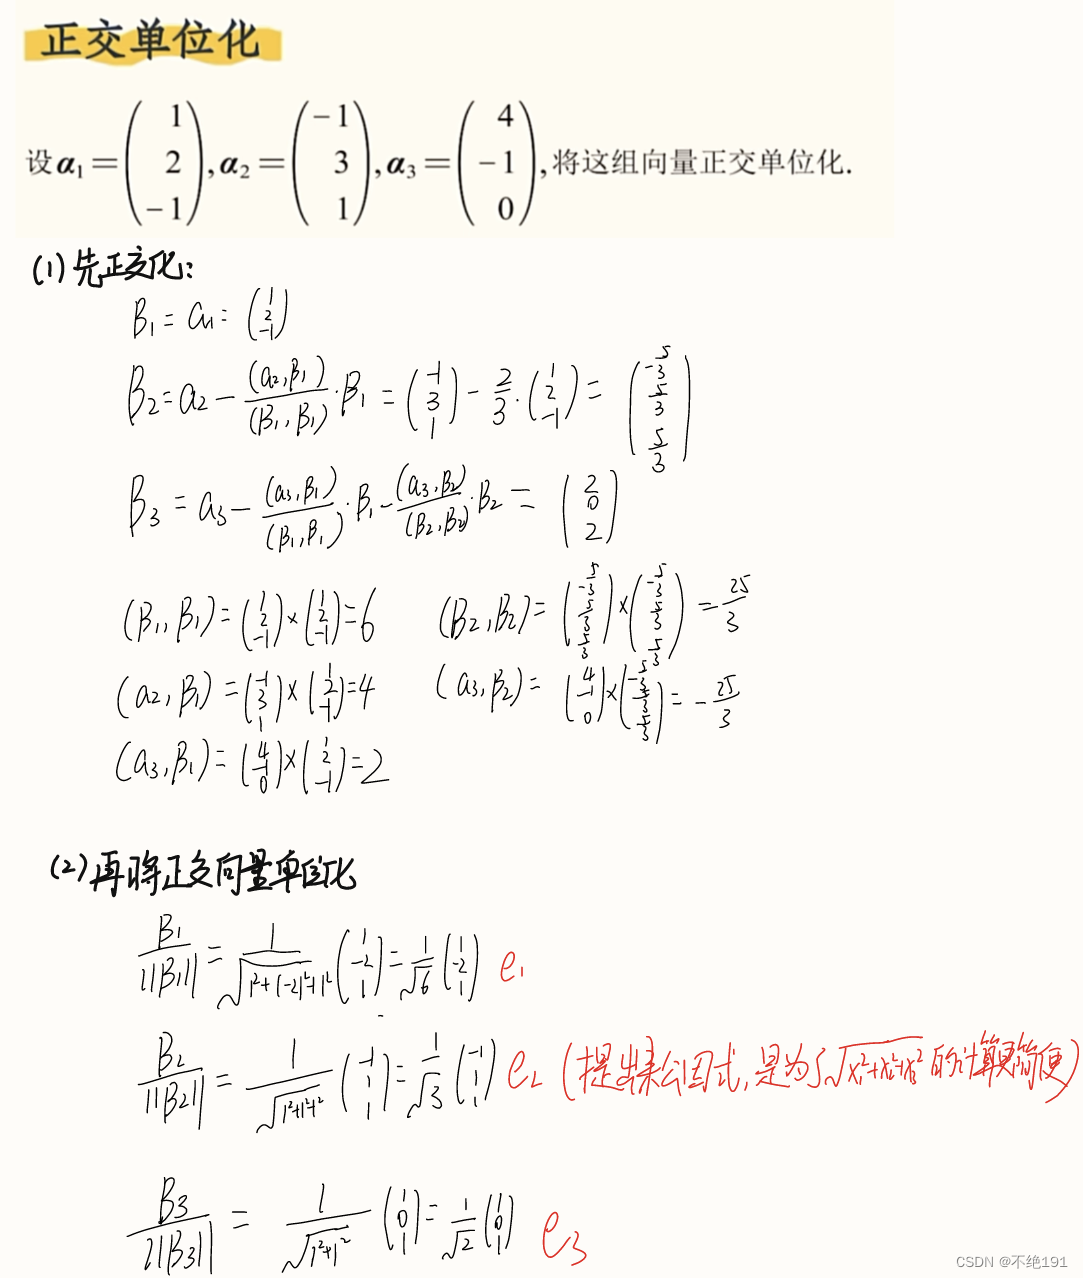 正交单位化
设 α₁ = (1, 2, −1), α₂ = (−1, 3, 1), α₃ = (4, −1, 0), 将这组向量正交单位化.
(1) 先正交化:
β₁ = a₁ = (1, 2, −1)
β₂ = a₂ − (a₂,β₁)/(β₁,β₁) · β₁ = (−1, 3, 1) − 2/3 · (1, 2, −1) = (−5/3, 5/3, 5/3)
β₃ = a₃ − (a₃,β₁)/(β₁,β₁) · β₁ − (a₃,β₂)/(β₂,β₂) · β₂ = (2, 0, 2)
(β₁,β₁) = (1, 2, −1) × (1, 2, −1) = 6 (β₂,β₂) = (−5/3, 5/3, 5/3) × (−5/3, 5/3, 5/3) = 25/3
(a₂,β₁) = (−1, 3, 1) × (1, 2, −1) = 4 (a₃,β₂) = (4, −1, 0) × (−5/3, 5/3, 5/3) = −25/3
(a₃,β₁) = (4, −1, 0) × (1, 2, −1) = 2
(2) 再将正交向量单位化
β₁/||β₁|| = 1/√(1²+(−2)²+1²) (1, −2, 1) = 1/√6 (1, −2, 1) e₁
β₂/||β₂|| = 1/√(1²+1²+1²) (−1, 1, 1) = 1/√3 (−1, 1, 1) e₂ (提出来公因式, 是为了√(x₁²+x₂²+x₃²) 的计算更简便)
β₃/||β₃|| = 1/√(1²+1²) (1, 0, 1) = 1/√2 (1, 0, 1) e₃
CSDN @不绝191